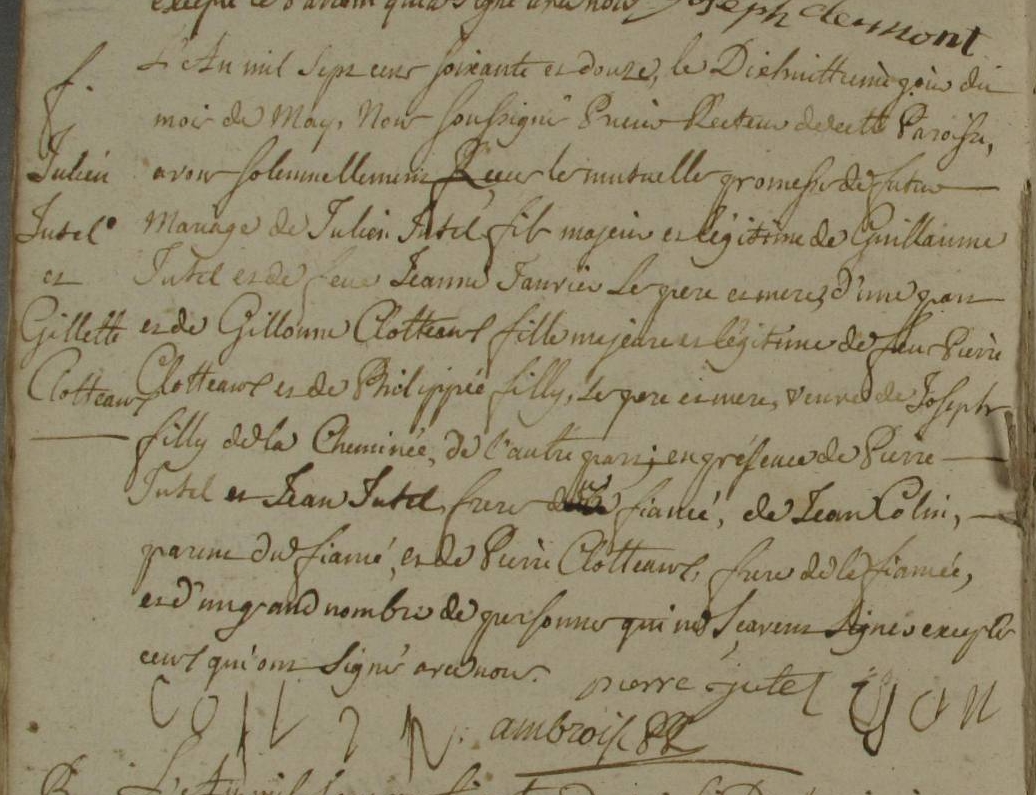 excepté
Joseph clermont
f.
Julien
Jutel
et
Gillette
Clotteaux
L'An mil sept cent soixante et douze, le Dixhuittieme jour du
mois de May, Nous soussigné Prieur Recteur de cette Paroisse,
avons solemnellement Receu les mutuelles promesses de futur
Mariage de Julien Jutel fils majeur et légitime de Guillaume
Jutel et de feue Jeanne Janvier Ses pere et mere, d'une part
et de Gillonne Clotteaux fille majeure et légitime de feu Pierre
Clotteaux et de Philippée filly, Ses pere et mere, veuve de Joseph
filly de la Cheminée, de l'autre part; en présence de Pierre
Jutel et Jean Jutel frere du fiancé, de Jean Colin,
parent du fiancé, et de Pierre Clotteaux, frere de la fiancée,
et d'un grand nombre de personnes qui ne Scavent Signer exceptés
ceux qui ont Signé avec nous.
pierre jutel
ambroise
L'An mil